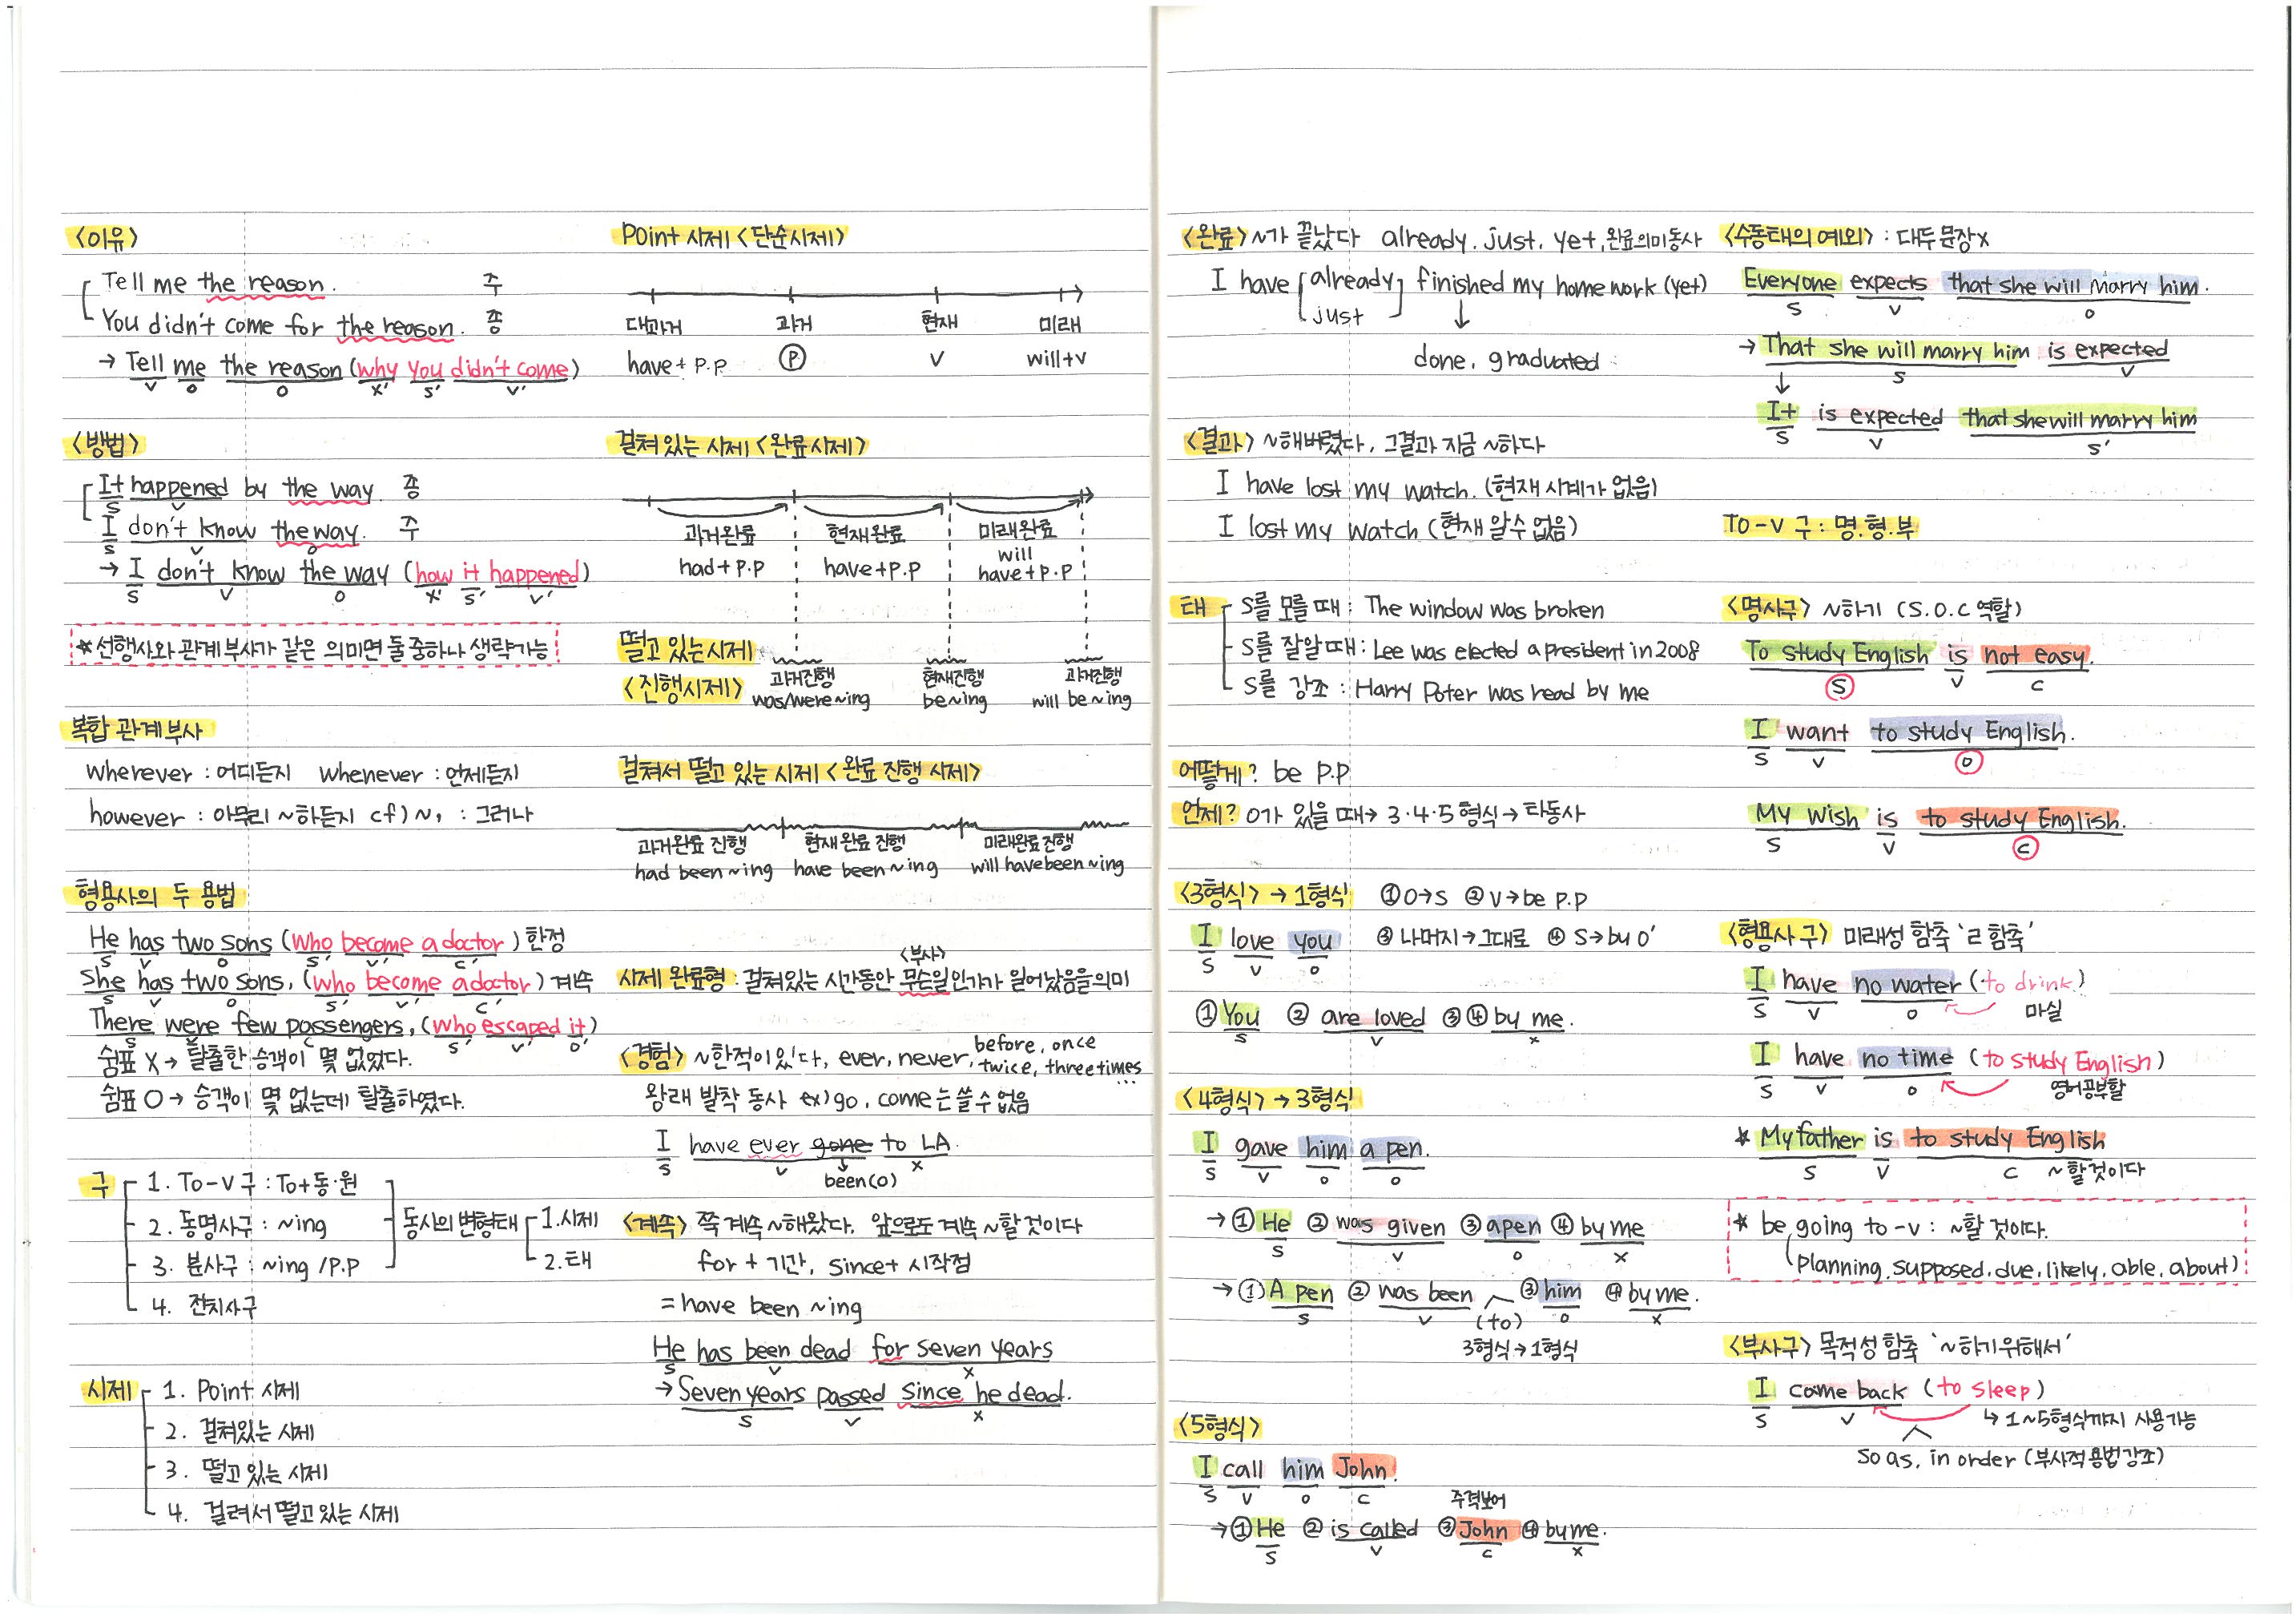 <이유>
Tell me the reason. 주
You didn't come for the reason. 종
→ Tell me the reason (why you didn't come)
V O O X' S' V'
<방법>
It happened by the way. 종
S V
I don't know the way. 주
S V O
→ I don't know the way (how it happened)
S V O X' S' V'
*선행사와 관계부사가 같은 의미면 둘 중 하나 생략가능
복합 관계부사
wherever : 어디든지 whenever : 언제든지
however : 아무리 ~하든지 cf) ~, : 그러나
형용사의 두 용법
He has two sons (who become a doctor) 한정
S V O S' V' C'
She has two sons, (who become a doctor) 계속
S V O S' V' C'
There were few passengers, (who escaped it)
S V C S' V' O'
쉼표 X → 탈출한 승객이 몇 없었다.
쉼표 O → 승객이 몇 없는데 탈출하였다.
구
1. To-V 구 : To+동·원
2. 동명사구 : ~ing
3. 분사구 : ~ing / P.P
4. 전치사구
동사의 변형태
1. 시제
2. 태
시제
1. Point 시제
2. 걸쳐있는 시제
3. 떨고 있는 시제
4. 걸려서 떨고 있는 시제
Point 시제 <단순시제>
대과거 과거 현재 미래
have + P.P Ⓟ V will+v
걸쳐 있는 시제 <완료시제>
과거완료 현재완료 미래완료
had+P.P have+P.P will have+P.P
떨고 있는 시제
<진행시제>
과거진행 현재진행 과거진행
was/were~ing be~ing will be~ing
걸쳐서 떨고 있는 시제 <완료 진행 시제>
과거완료 진행 현재완료 진행 미래완료진행
had been ~ing have been ~ing will have been ~ing
<부사>
시제 완료형 : 걸쳐있는 시간동안 무슨일인가가 일어났음을의미
<경험> ~한적이있다, ever, never, before, once
twice, three times ...
왕래 발착 동사 ex) go, come는 쓸 수 없음
I have ever gone to LA.
S V X
been (O)
<계속> 쭉 계속 ~해왔다. 앞으로도 계속 ~할 것이다
for + 기간, since + 시작점
= have been ~ing
He has been dead for seven years
S V X
→ Seven years passed since he dead.
S V X
<완료> ~가 끝났다 already, just, yet, 완료의미동사
I have already just finished my homework (yet)
↓
done, graduated
<결과> ~해버렸다, 그결과 지금 ~하다
I have lost my watch. (현재 시계가 없음)
I lost my watch (현재 알수 없음)
태
S를 모를 때 : The window was broken
S를 잘알 때 : Lee was elected a president in 2008
S를 강조 : Harry Poter was read by me
어떻게? be P.P
언제? O가 있을 때→ 3·4·5 형식→ 타동사
<3형식> → 1형식 ① O→S ② V→be P.P
I love you ③ 나머지→그대로 ④ S→by O'
S V O
① You ② are loved ③ ④ by me.
S V X
<4형식> → 3형식
I gave him a pen.
S V O O
→ ① He ② was given ③ a pen ④ by me
S V O X
→ ① A pen ② was been (to) ③ him ④ by me.
S V O X
3형식→1형식
<5형식>
I call him John.
S V O C
주격보어
→ ① He ② is called ③ John ④ by me.
S V C X
<수동태의 예외> : 대두 문장X
Everyone expects that she will marry him.
S V O
→ That she will marry him is expected
S V
↓
It is expected that she will marry him
S V S'
To-V 구 : 명.형.부
<명사구> ~하기 (S.O.C 역할)
To study English is not easy.
S V C
I want to study English.
S V O
My wish is to study English.
S V C
<형용사 구> 미래성 함축 'ㄹ 함축'
I have no water (to drink)
S V O 마실
I have no time (to study English)
S V O 영어공부할
* My father is to study English
S V C ~할것이다
* be going to -v : ~할 것이다.
(planning, supposed, due, likely, able, about)
<부사구> 목적성 함축 '~하기위해서'
I came back (to sleep)
S V ↳ 1~5형식까지 사용가능
so as, in order (부사적용법강조)